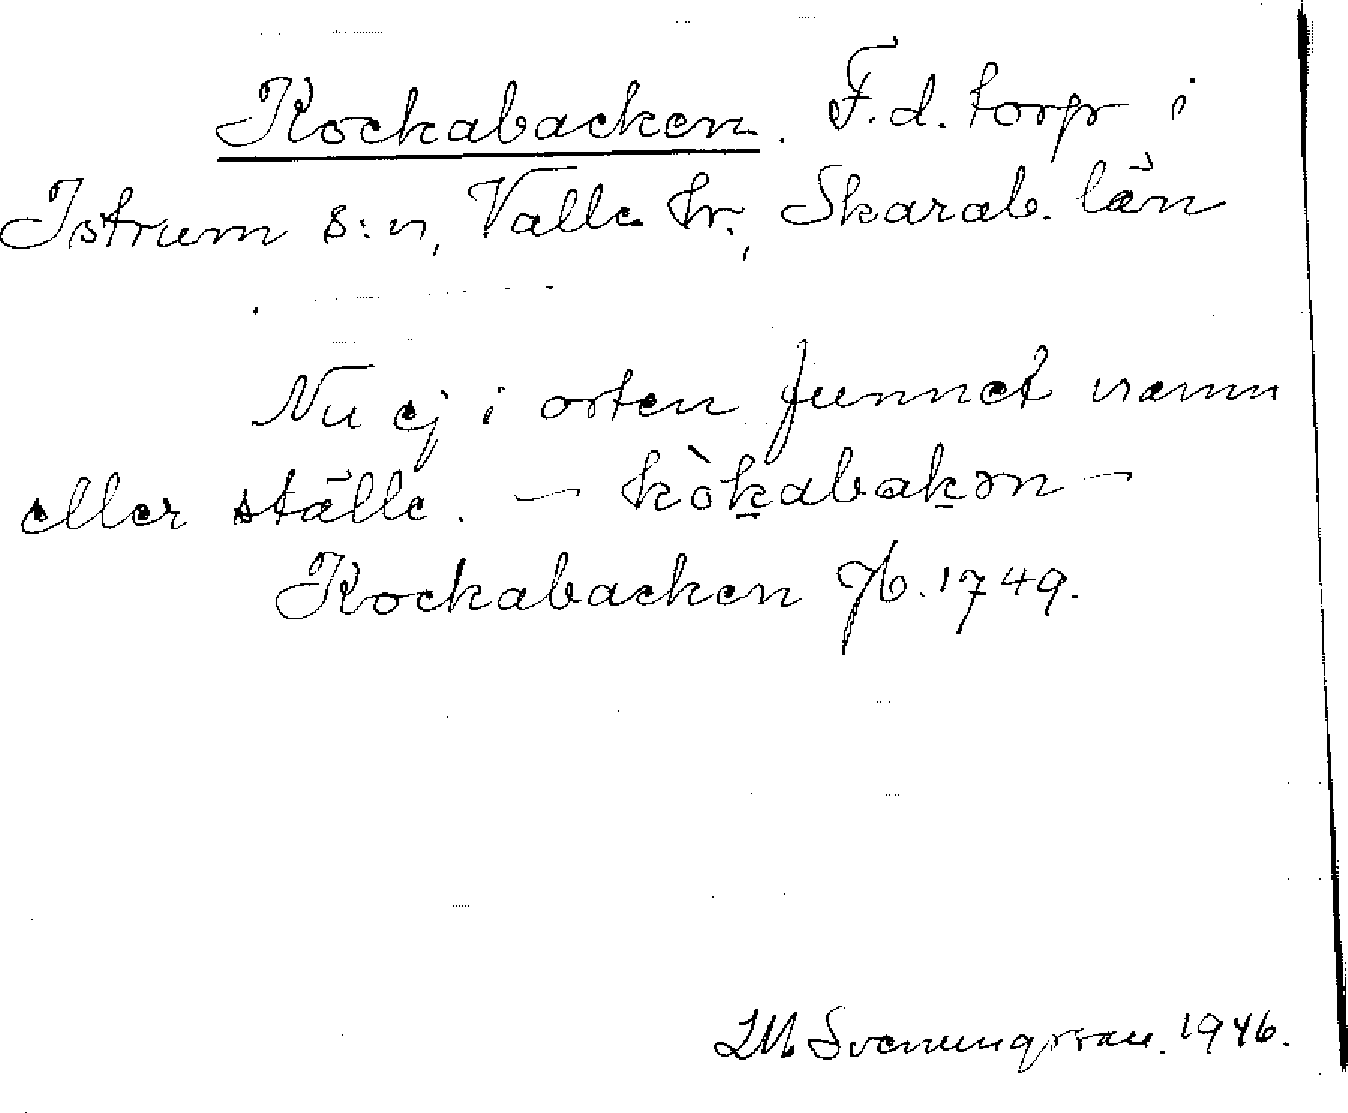 Kockabacken. F.d. torp i
Istrum s:n, Valle hr., Skarab. län
Nu ej i orten funnet namn
eller ställe. — kòkabakən —
Kockabacken Jb. 1749.
Svenungsson. 1946.